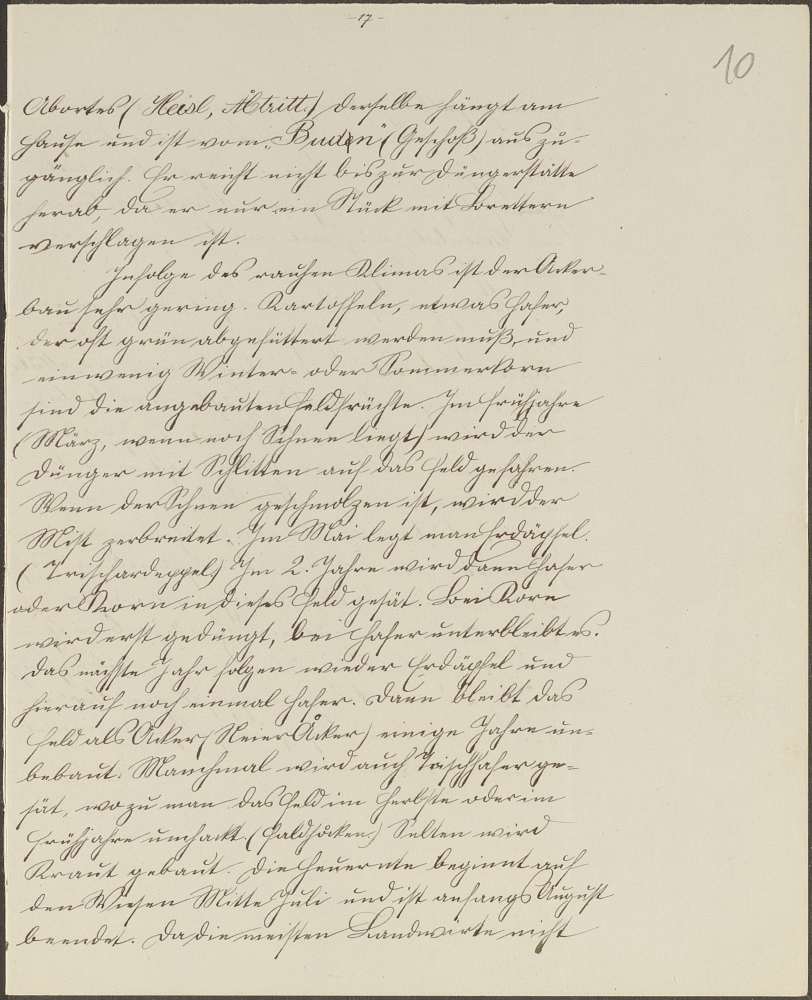 -17-
10
Abortes (Heisl, Åbtritt.) Derselbe hängt am
Hause und ist vom „Buden" (Geschoß) aus zu-
gänglich. Er reicht nicht bis zur Düngerstätte
herab, da er nur ein Stück mit Brettern
verschlagen ist.
Infolge des rauhen Klimas ist der Acker-
bau sehr gering. Kartoffeln, etwas Hafer,
der oft grün abgefüttert werden muß, und
ein wenig Winter- oder Sommerkorn
sind die angebauten Feldfrüchte. Im Frühjahre
(März, wenn noch Schnee liegt) wird der
Dünger mit Schlitten auf das Feld gefahren.
Wenn der Schnee geschmolzen ist, wird der
Mist zerbreitet. Im Mai legt man Erdäpfel.
(Trischardeppel) Im 2. Jahre wird dann Hafer
oder Korn in dieses Feld gesät. Bei Korn
wird erst gedüngt, bei Hafer unterbleibt es.
Das nächste Jahr folgen wieder Erdäpfel und
hierauf noch einmal Hafer. Dann bleibt das
Feld als Acker (Neier Åcker) einige Jahre un-
bebaut. Manchmal wird auch Trischhafer ge-
sät, wozu man das Feld im Herbste oder im
Frühjahre umhackt. Selten wird
Kraut gebaut. Die Heuernte beginnt auf
den Wiesen Mitte Juli und ist anfangs August
beendet. Da die meisten Landwirte nicht